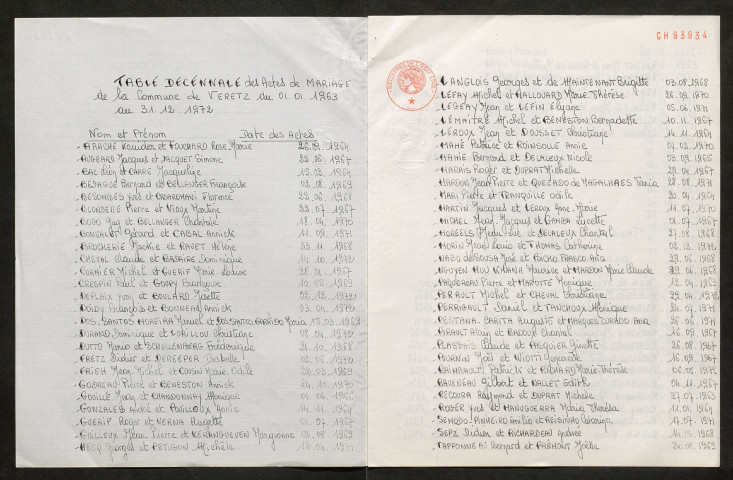 TABLE DÉCENNALE des Actes de MARIAGE
de la Commune de VERETZ du 01.01.1963
au 31.12.1972
Nom et Prénom Date des Actes
- ARACHÉ et FOUCHARD Rose Marie 1964
- AUGEARD Jacques et JACQUET Simone 1967
- BAC Léon et CARRÉ Jacqueline 15.02.1964
- BEJAGUE Bernard et BELLANGER Françoise 02.08.1969
- DESOMBES Yvet et Florence 22.06.1968
- BLONDELLE Pierre et VIOUX Martine 22.07.1967
- BODO Guy et BELLANGER Christiale 18.04.1970
- Gérard et CABAL Annick 11.09.1971
- BROCHERIE Jackie et RAVET Hélène 23.11.1968
- CHEVAL Claude et Dominique 14.10.1972
- CORMIER Michel et GUERIF Marie-Louise 28.01.1967
- CRESPIN Paul et 10.05.1969
- DEPLAIX Yvon et BOULARD Josette 02.12.1972
- DOIDY François et BONNEAU Annick 03.04.1971
- DOS SANTOS MOREIRA Manuel et DOS SANTOS Maria 15.03.1969
- DURAND Dominique et 08.04.1972
- DUTTO Mario et SCHULENBERG Frédérique 24.10.1968
- FRETZ Didier et DEREEPER Isabelle 02.06.1972
- FRIEH Jean-Michel et COUSIN Marie-Odile 28.03.1969
- GODREAU Pierre et BENESTON Annick 24.10.1970
- Jean et CHARDONNAY Monique 05.06.1965
- GONZALES André et Annie 14.11.1964
- GUERIF Roger et VERNA Huguette 01.07.1967
- GUILLEUX Jean Pierre et KERANGUEVEN Maryvonne 05.08.1969
- HECQ Georges et PETITHON Michèle 1971
CH 93934
- LANGLOIS Georges et de MAINTENANT Brigitte 03.08.1968
- LEFAY Michel et HALLOUARD Marie-Thérèse 26.09.1970
- LEGEAY Jean et LEFIN Elyane 05.06.1971
- LEMAITRE Michel et BENESTON Bernadette 10.11.1967
- LEROUX Jean et DOUSSET Christiane 14.11.1964
- MAHÉ Patrice et ROINSOLLE Annie 07.02.1970
- MAHIE Bernard et DELALEUX Nicole 03.09.1965
- MARAIS Roger et DUPRAT Michelle 29.04.1967
- MARDON Jean Pierre et QUEZADO de MAGALHAES Tania 28.08.1971
- MARI Pierre et TRANQUILLE Odile 20.04.1964
- MARTIN Jacques et LEROUX Anne-Marie 11.07.1970
- MICHEL Jean-Jacques et GAMBA Lucette 01.07.1967
- MOREELS Jean-Luc et DELALEUX Chantal 27.08.1968
- MORIN Jean-Louis et THOMAS Catherine 02.12.1972
- NABO DE SOUSA José et ROCHO FRANCO Ana 29.06.1968
- NGUYEN HUU Maurice et MARDON Marie-Claude 29.06.1968
- PAQUEREAU Pierre et MAROTTE Monique 12.04.1963
- PERRAULT Michel et CHEVAL Christiane 22.04.1972
- PERRIGAULT Daniel et FANCHOUX Monique 24.07.1971
- PESTANA-CARITA Augusto et MARQUES CURADO Ana 26.06.1971
- PIRAULT Alain et BADOUX Chantal 16.09.1967
- PLASTAIS Claude et PASQUIER Ginette 26.08.1967
- POURNIN Joël et VIOTTI 16.09.1967
- RAIMBAULT Patrick et RICHARD Marie-Thérèse 06.05.1972
- RAVENEAU Gilbert et NALLET Edith 04.11.1967
- RECOURA Raymond et DUPRAT Michèle 27.07.1963
- ROGER Yves et MANUGUERRA Maria Thérésa 11.01.1964
- SENADO-PINHEIRO Emilio et 17.07.1971
- SEPZ Didier et RICHARDEAU Andrée 1968
- TAFFONNEAU Bernard et FRÉMONT Joëlle 30.08.1969